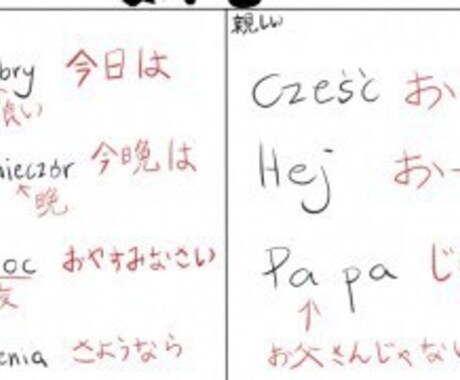 bry 今日は
良い
ieczór 今晩は
晩
oc おやすみなさい
enia さようなら
親しい
Cześć お
Hej おー
Pa pa じ
お父さんじゃな